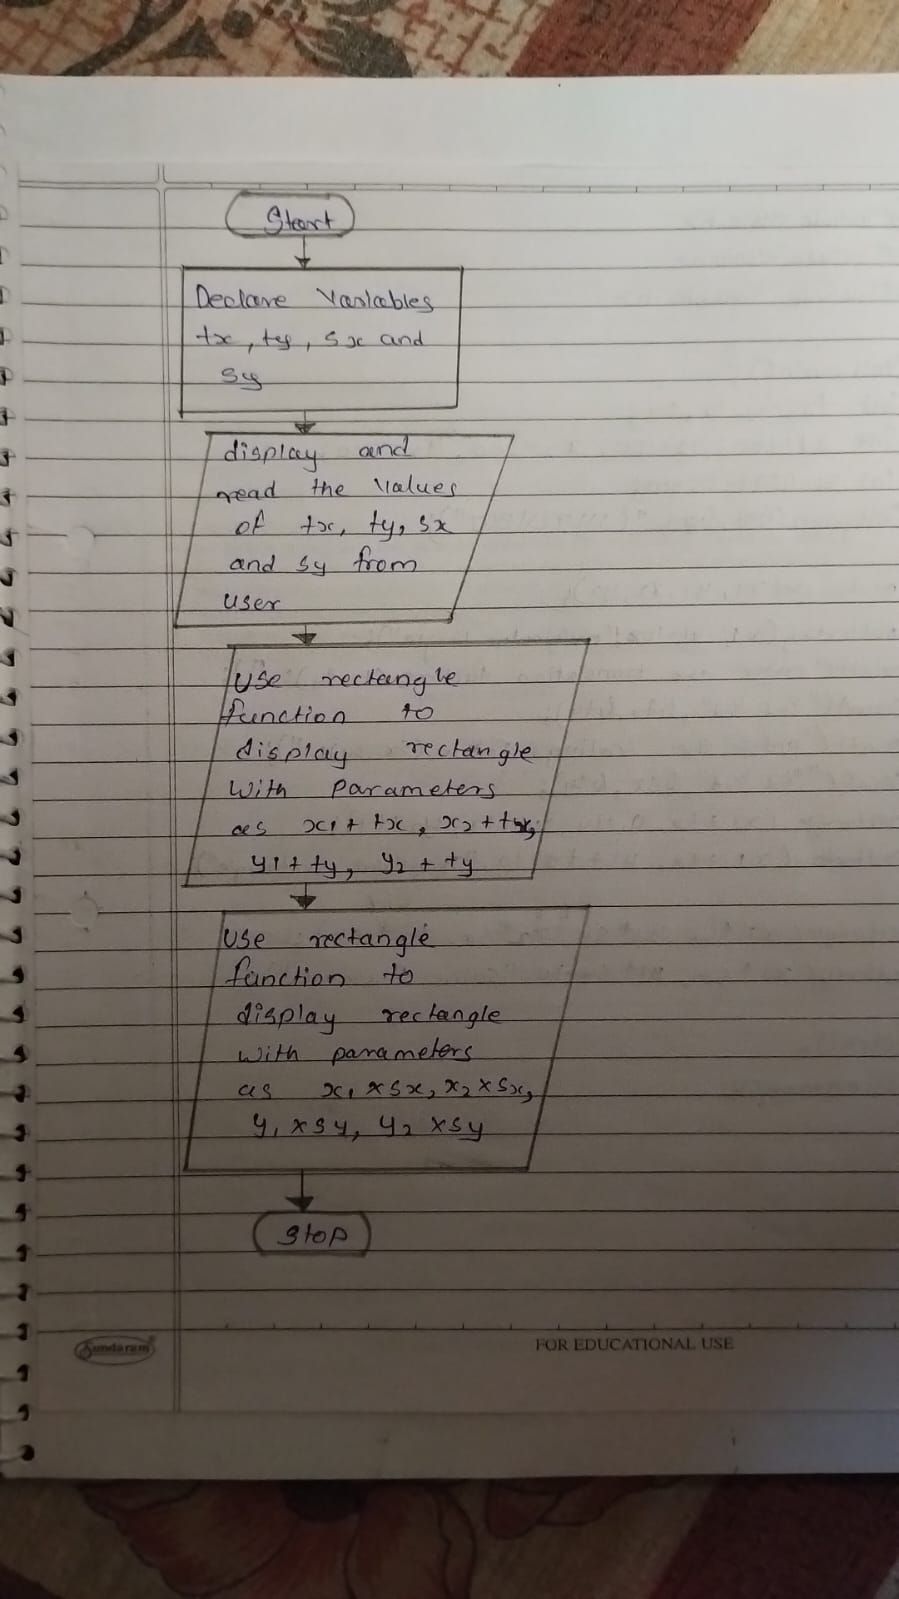 Start
Declare Variables
tx, ty, sx and
sy
display and
read the values
of tx, ty, sx
and sy from
user
Use rectangle
function to
display rectangle
with parameters
as x1 + tx, x2 + tx,
y1 + ty, y2 + ty
Use rectangle
function to
display rectangle
with parameters
as x1 × sx, x2 × sx,
y1 × sy, y2 × sy
Stop
Sundaram
FOR EDUCATIONAL USE